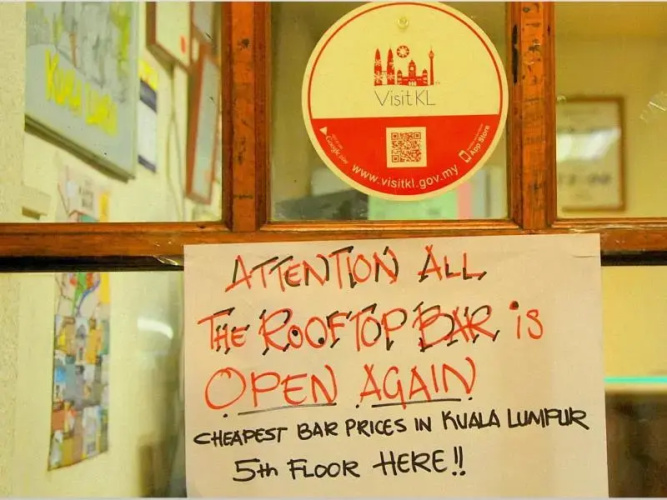 KUALA LUMPU
VisitKL
Google play
App Store
www.visitkl.gov.my
ATTENTION ALL
THE ROOFTOP BAR is
OPEN AGAIN
CHEAPEST BAR PRICES IN KUALA LUMPUR
5th FLOOR HERE!!